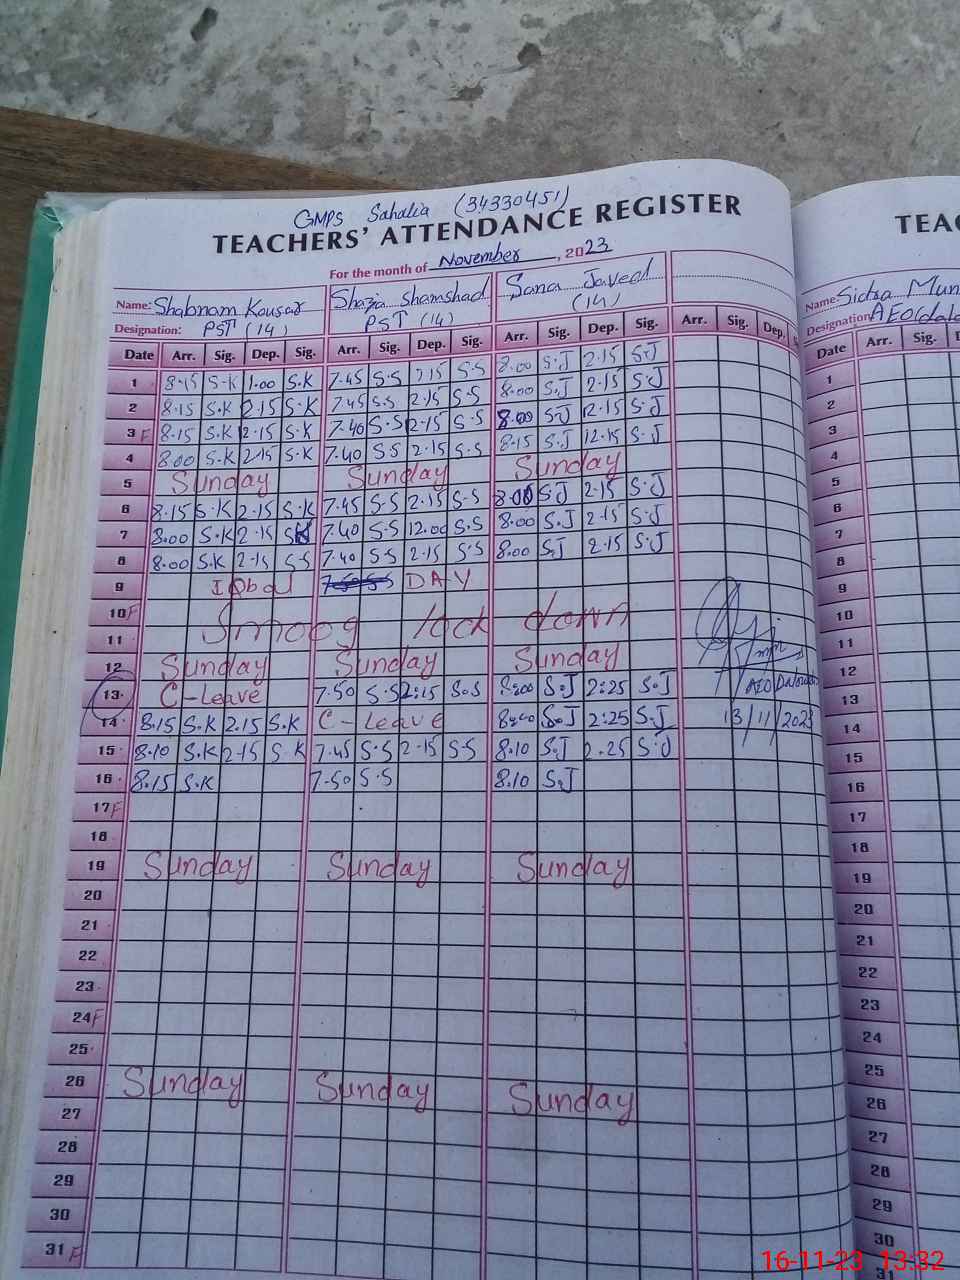 GMPS Sahalia (34330451)
TEACHERS' ATTENDANCE REGISTER
For the month of November, 2023
Name: Shabnam Kousar Shazia Shamshad Sana Javed
Designation: PST (14) PST (14) (14)
Date Arr. Sig. Dep. Sig. Arr. Sig. Dep. Sig. Arr. Sig. Dep. Sig. Arr. Sig. Dep. S
1 8.15 S.K 1.00 S.K 7.45 S.S 2.15 S.S 8.00 S.J 2.15 S.J
2 8.15 S.K 2.15 S.K 7.45 S.S 2.15 S.S 8.00 S.J 2.15 S.J
3 F 8.15 S.K 2.15 S.K 7.40 S.S 2.15 S.S 8.00 S.J 12.15 S.J
4 8.00 S.K 2.15 S.K 7.40 S.S 2.15 S.S 8.15 S.J 12.15 S.J
5 Sunday Sunday Sunday
6 8.15 S.K 2.15 S.K 7.45 S.S 2.15 S.S 8.00 S.J 2.15 S.J
7 8.00 S.K 2.15 SK 7.40 S.S 12.00 S.S 8.00 S.J 2.15 S.J
8 8.00 S.K 2.15 S.S 7.40 S.S 2.15 S.S 8.00 S.J 2.15 S.J
9 Iqbal DAY
10 F
11 Smoog lock down
12 Sunday Sunday Sunday
13 C-Leave 7.50 S.S 2:15 S.S 8:00 S.J 2:25 S.J
14 8.15 S.K 2.15 S.K C-Leave 8:00 S.J 2:25 S.J 13/11/2023
15 8.10 S.K 2.15 S.K 7.45 S.S 2.15 S.S 8.10 S.J 2.25 S.J
16 8.15 S.K 7.50 S.S 8.10 S.J
17 F
18
19 Sunday Sunday Sunday
20
21
22
23
24 F
25
26 Sunday Sunday Sunday
27
28
29
30
31 F
TEAC
Name: Sidra Mun
Designation AEO
Date Arr. Sig.
1
2
3
4
5
6
7
8
9
10
11
12
13
14
15
16
17
18
19
20
21
22
23
24
25
26
27
28
29
30
31
16-11-23 13:32